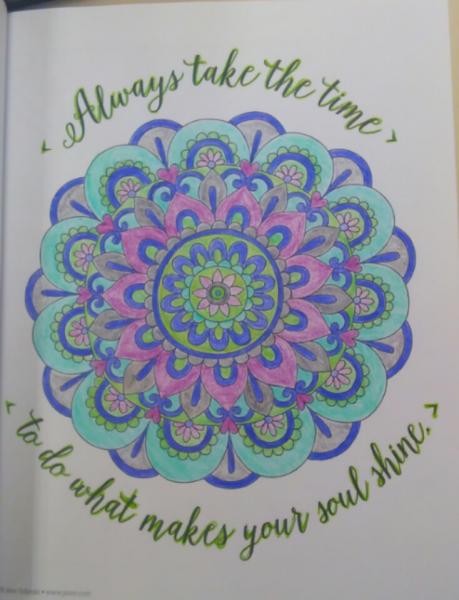 Always take the time
to do what makes your soul shine.